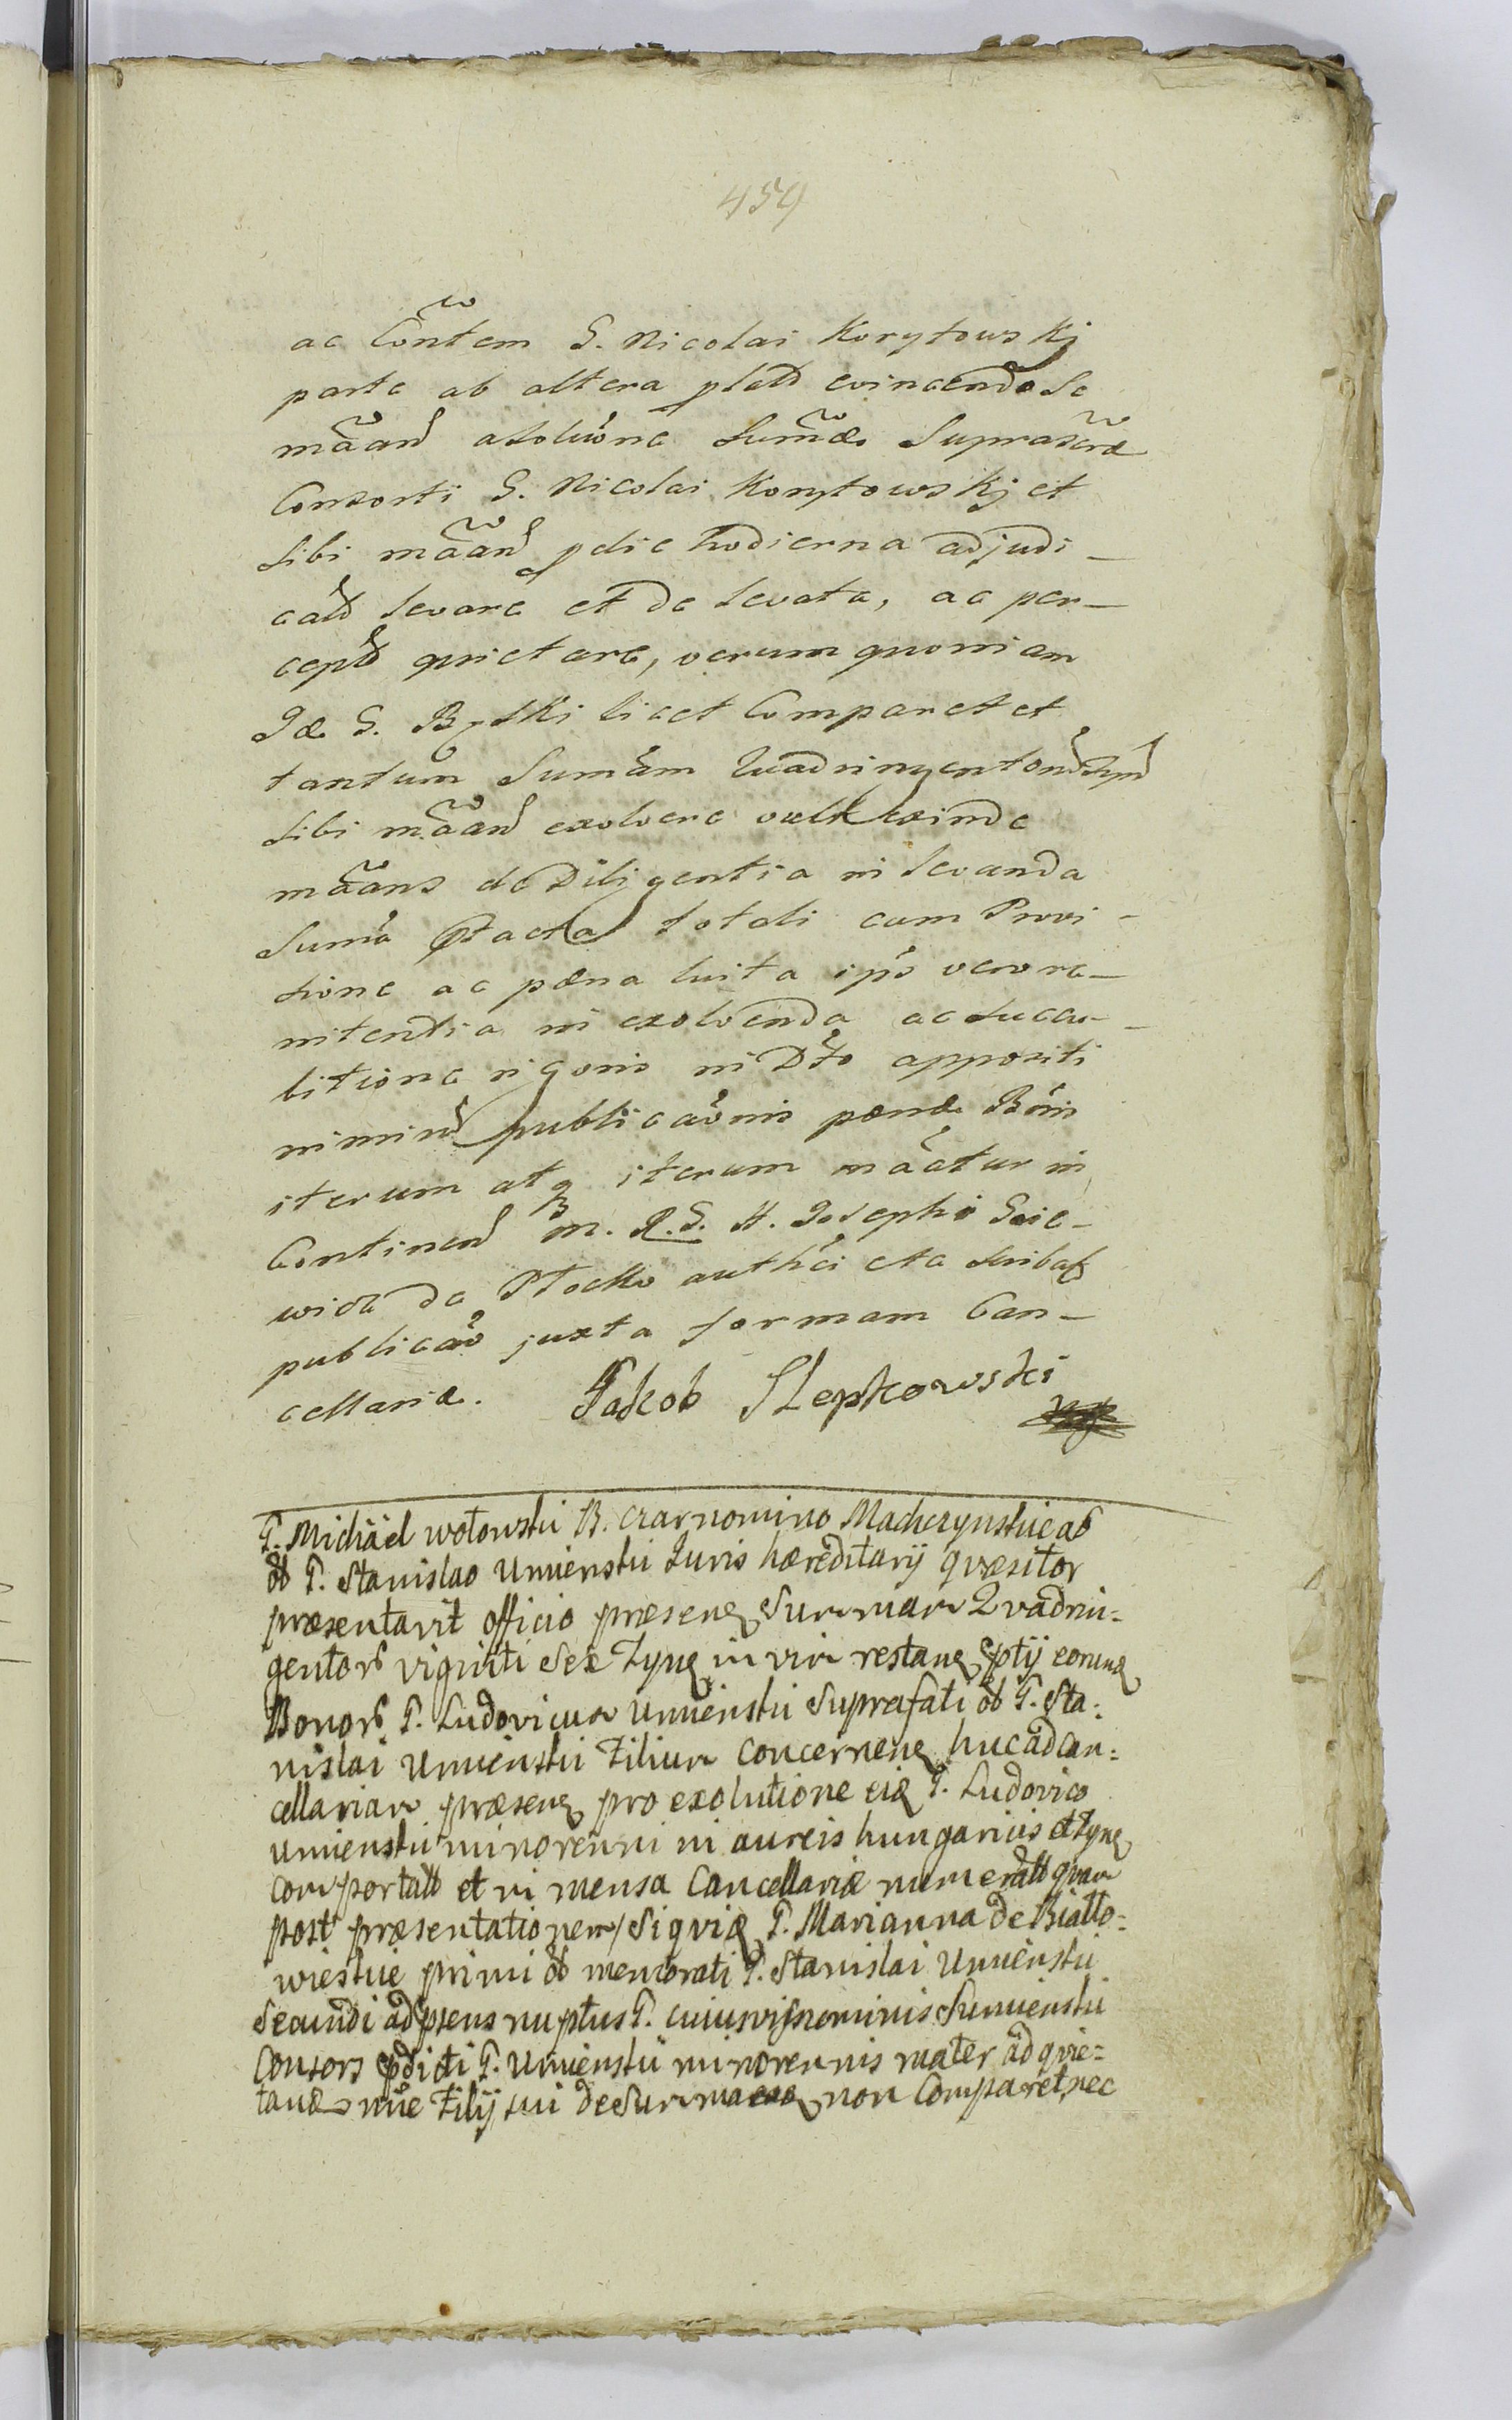 459
ac Contem G. Nicolai Korytowskj
parte ab altera platt evincendo Se
mãan asolũone Sumæ Suprascræ
Consorti G. Nicolai Korytowskj et
Sibi mãan p die hodierna adjudi_
catt levare et de levata, ac per_
ceptt quietare, verum quoniam
Idẽ G. Bylski licet Comparet et
tantum Sumãm Quadringentorũ
Sibi mãan exolvere vult exinde
mãans de Diligentia in levanda
Suma ptacta totali cum Provi_
sione ac pæna luita ipo vero re_
nitentia in exolvenda ac Succu_
bitione rigoris in Dto appositi
nimirũ publicaõnis pænæ Bãnis
iterum atq iterum mãatur in
Continen M. R. G. H. Josephi Gaie_
wicz de Płocko authci acta Scribatq
publicaõ juxta formam Can_
cellariæ. Jakob Slepkowski
G. Michäel wołowski B. Czarnomino Macherynskie ab
ol G. Stanislao Umienski Juris hæreditarij qvæsitor
præsentavit officio præsenq Summam Qvadrin=
gentorũ viginti Sex Zynq in vim restanq ptij eorunq
Bonorũ G. Ludovicum Umienski Suprafati ol G. Sta=
nislai Umienski Filium Concernenq huc ad Can=
cellariam præsenq pro exolutione eiq G. Ludovico
Umienski minorenni in aureis hungaricis et Zynq
Comportatt et in mensa Cancellariæ numeratt quam
post præsentationem / Siqviq G. Marianna de Biatto=
wieskie primi ol memorati G. Stanislai Umienski
Secundi ad psens nuptus G. cuiusvis nominis Sumienski
Consors pdicti G. Umienski minorennis mater ad qvie=
tanq nõie Filij sui de Summa eaq non Comparet, nec